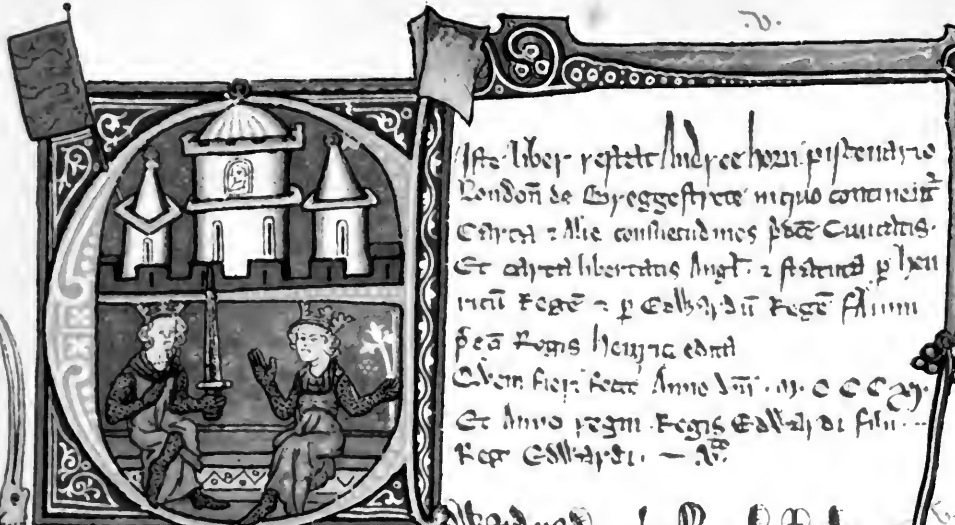 .v.
Iste liber restat Andree horn piscenario
London̄ de Breggestrete in quo continent᷑
Carta ⁊ Alie consuetudines p̄dc̄e Ciuitatis.
Et carta libertatis Angl̄. ⁊ statuta p̱ hen
ricū Regē ⁊ p̱ Edwardū Regē filium
p̄dc̄i Regis henrici edita
Quem fieri fecit Anno dn̄i. M. C C C xj.
Et Anno regni Regis Edwardi filii
Reg Edwardi. — vᵗᵒ